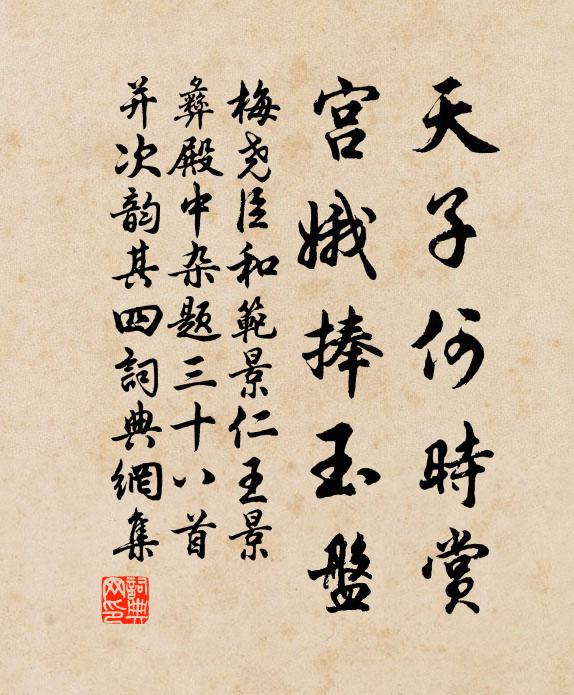 天子何時賞
宮娥捧玉盤
梅尧臣和範景仁王景
彝殿中杂题三十八首
并次韵其四詞典網集
詞典网印